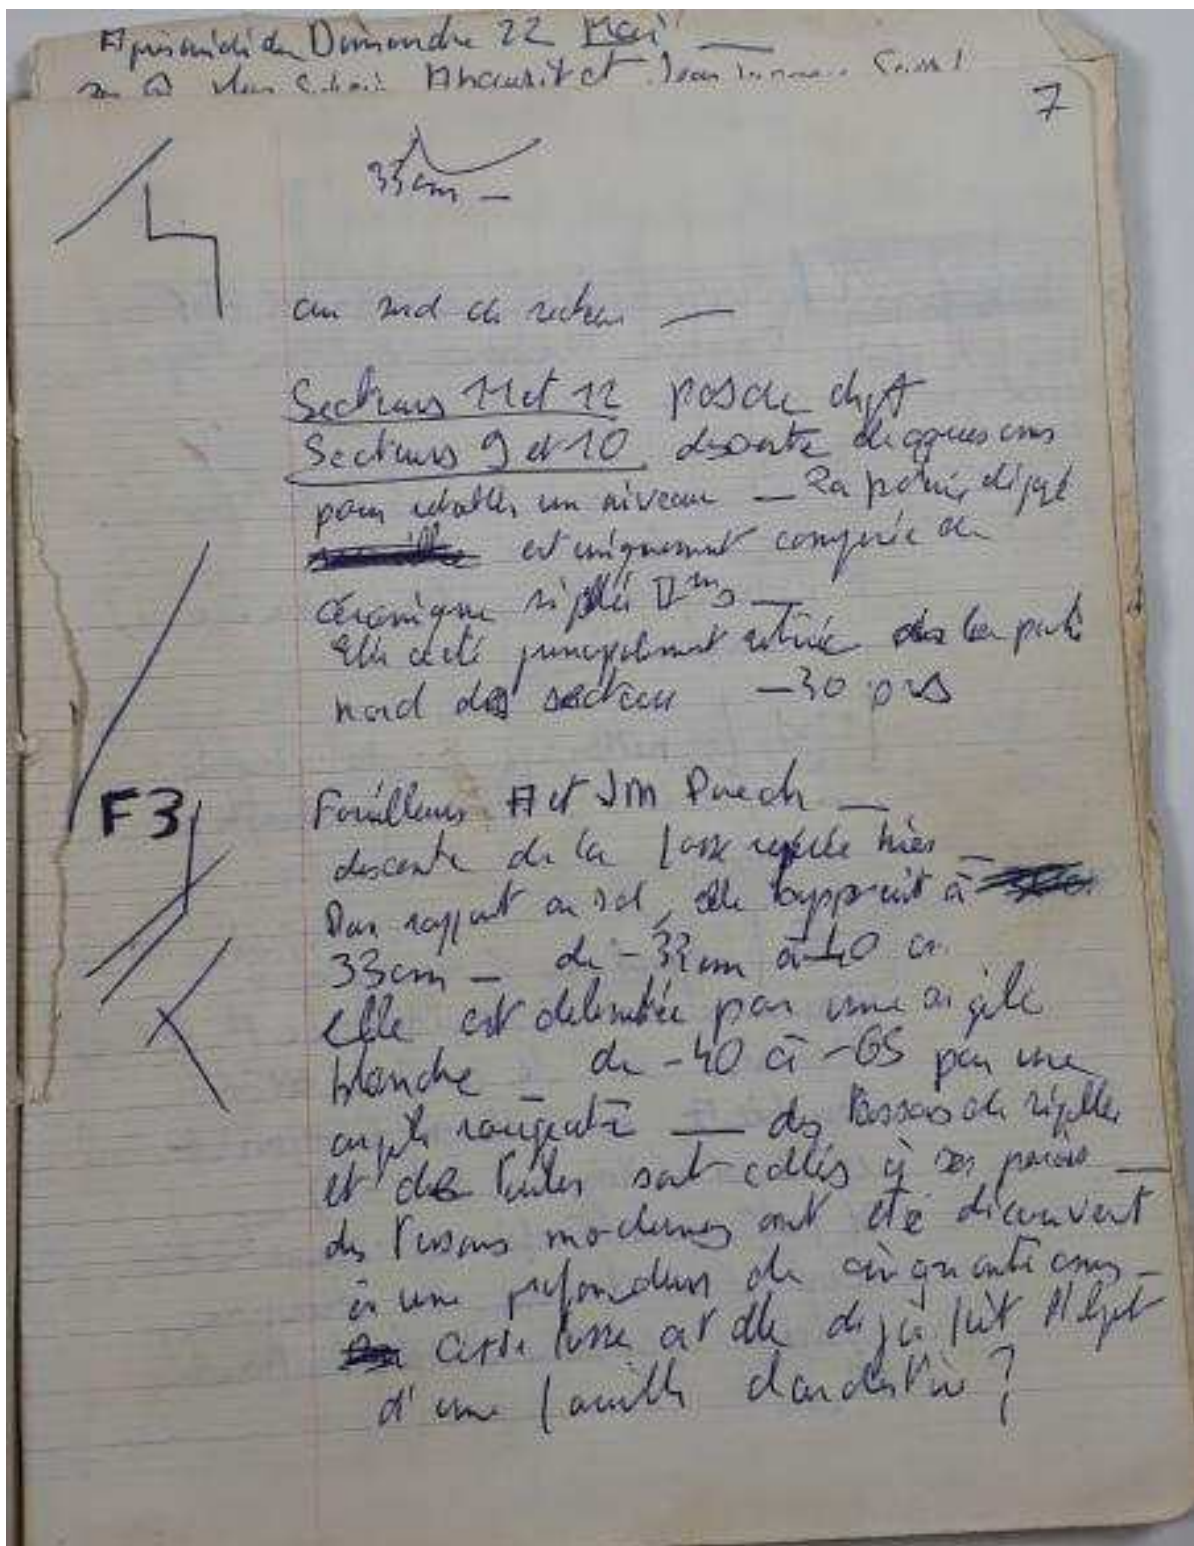 Après midi du Dimanche 22 Mai
et Jean
7
33 cm —
au nord du secteur —
Secteurs 11 et 12 pas de dépôt
Secteurs 9 et 10 descente de quelques cms
pour établir un niveau — La poterie
est uniquement composée de
céramique sigillée
Elle a été principalement retirée dans la partie
nord des secteurs — 30
F3
Fouilleurs A et JM Puech —
descente de la fosse hier —
Par rapport au sol, elle apparait à
33cm — de - 33 cm à - 40 cm
elle est délimitée par une argile
blanche — de - 40 à - 65 par une
argile rougeatre — des tessons de sigillée
et des tuiles sont collés à ses parois —
des tessons modernes ont été découvert
à une profondeur de cinquante cms —
Cette fosse a t elle déjà fait l'objet
d'une fouille clandestine ?